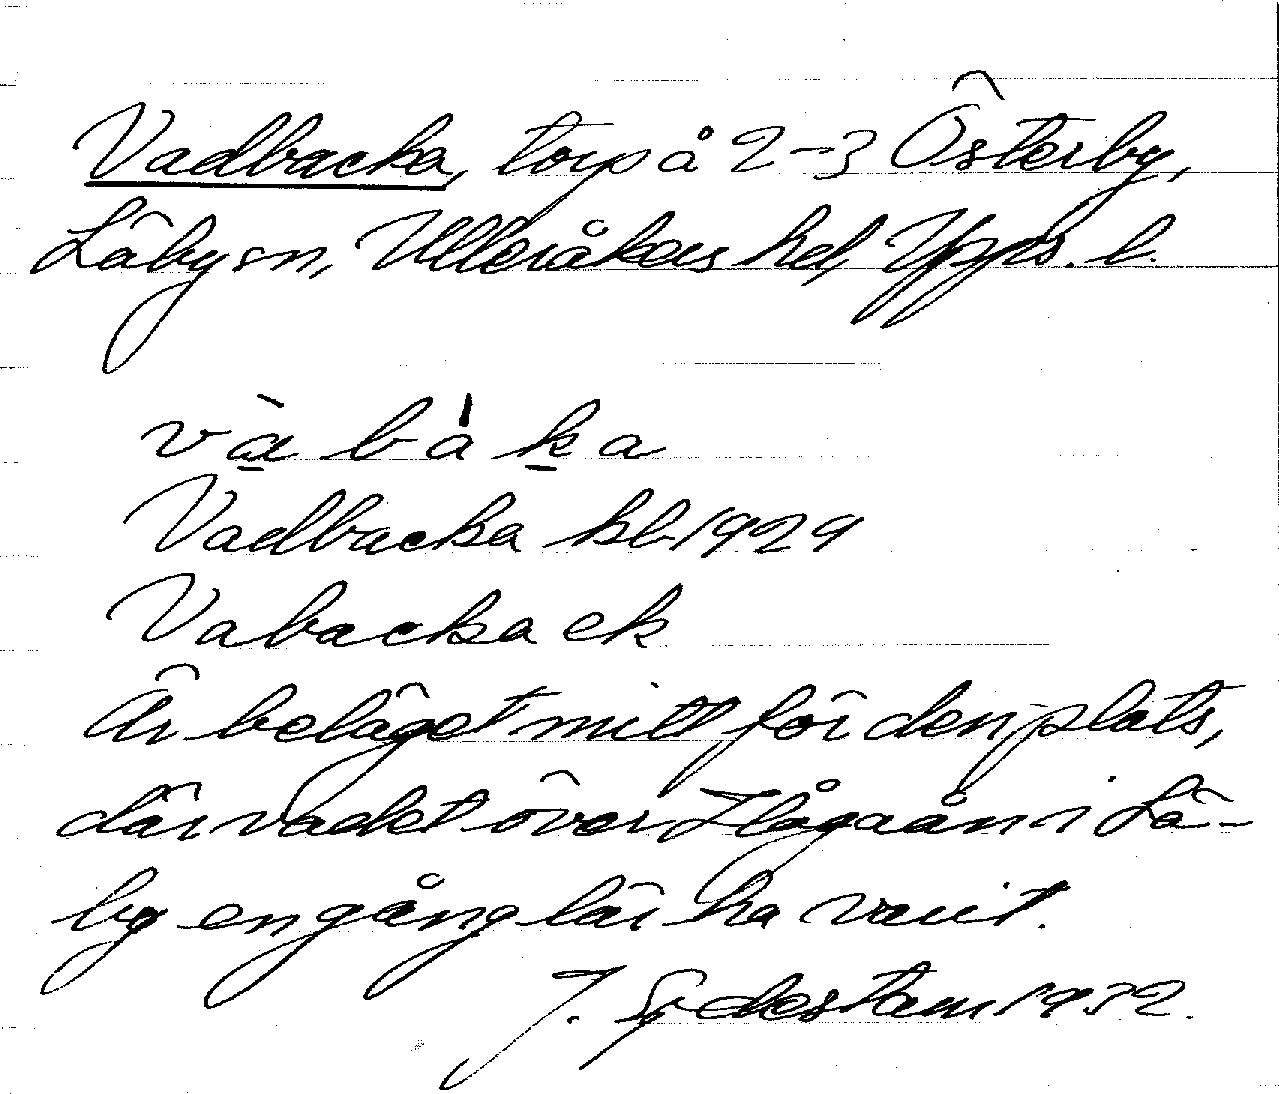 Vadbacka, torp å 2-3 Österby,
Läby sn, Ulleråkers hd, Upps. l.
vàbàka
Vadbacka kb 1929
Vabacka ek
Är beläget mitt för den plats,
där vadet över Hågaån i Lä-
by en gång lär ha varit.
J. Sydestam 1932.